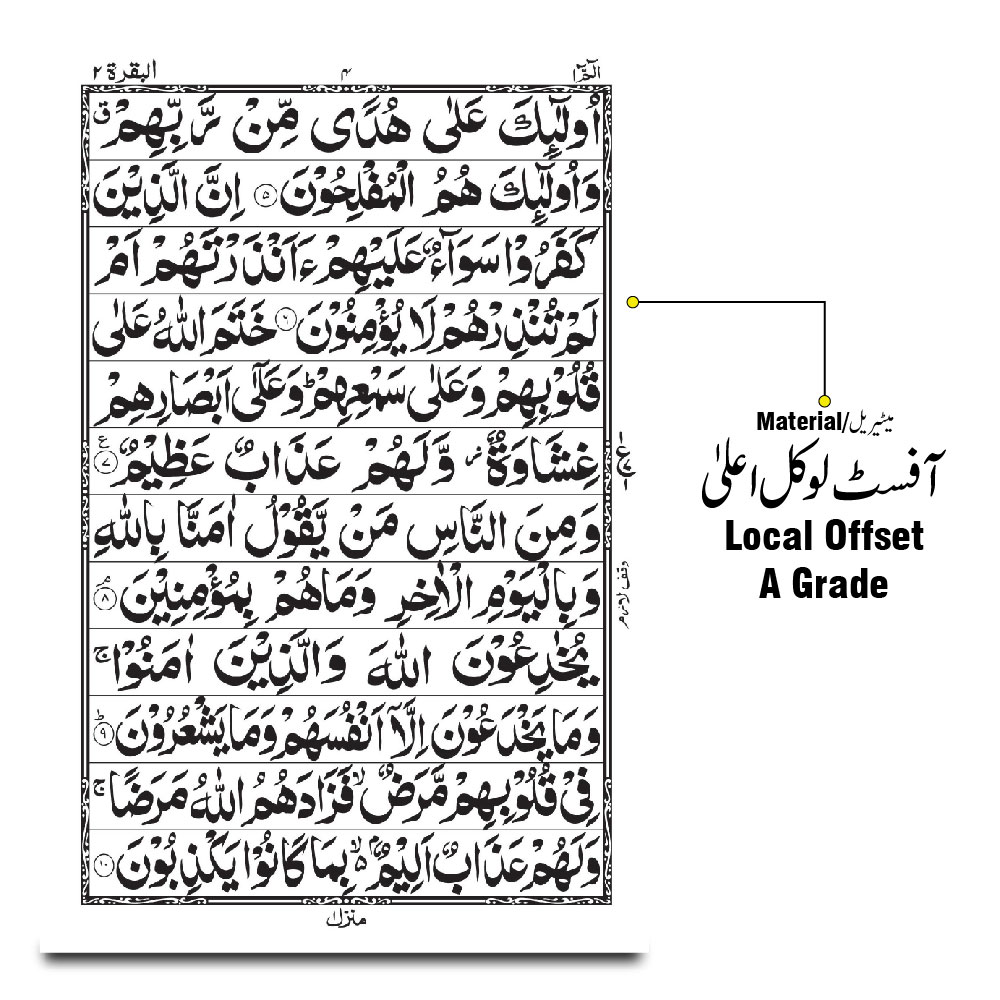 الٓمّٓ ١
٤
البقرة ٢
اُولٰٓئِكَ عَلٰى هُدًى مِّنْ رَّبِّهِمْ ۗ ق
وَاُولٰٓئِكَ هُمُ الْمُفْلِحُوْنَ ۝٥ اِنَّ الَّذِيْنَ
كَفَرُوْا سَوَآءٌ عَلَيْهِمْ ءَاَنْذَرْتَهُمْ اَمْ
لَمْ تُنْذِرْهُمْ لَا يُؤْمِنُوْنَ ۝٦ خَتَمَ اللّٰهُ عَلٰى
قُلُوْبِهِمْ وَعَلٰى سَمْعِهِمْ ؕ وَعَلٰٓى اَبْصَارِهِمْ
غِشَاوَةٌ ؗ وَّلَهُمْ عَذَابٌ عَظِيْمٌ ۝٧ ع
وَمِنَ النَّاسِ مَنْ يَّقُوْلُ اٰمَنَّا بِاللّٰهِ
وَبِالْيَوْمِ الْاٰخِرِ وَمَا هُمْ بِمُؤْمِنِيْنَ ۝٨ۘ
وقف لازم
يُخٰدِعُوْنَ اللّٰهَ وَالَّذِيْنَ اٰمَنُوْا ۚ
وَمَا يَخْدَعُوْنَ اِلَّآ اَنْفُسَهُمْ وَمَا يَشْعُرُوْنَ ۝٩ؕ
فِيْ قُلُوْبِهِمْ مَّرَضٌ ۙ فَزَادَهُمُ اللّٰهُ مَرَضًا ۚ
وَلَهُمْ عَذَابٌ اَلِيْمٌۢ ۙ۬ بِمَا كَانُوْا يَكْذِبُوْنَ ۝١٠
منزل
Material/میٹیریل
آفسٹ لوکل اعلیٰ
Local Offset
A Grade